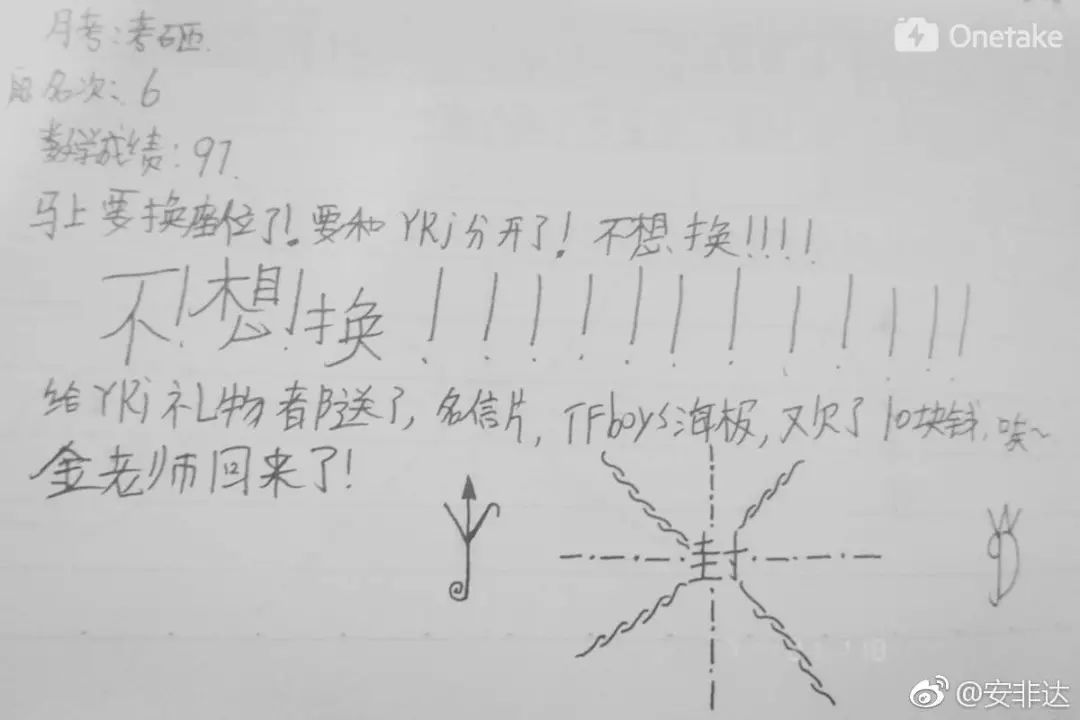 Onetake
月考:考砸.
名次:6
数学成绩:97.
马上要换座位了!要和YRj分开了!不想换!!!!
不!想!换!!!!!!!!!!!!
给YRj礼物都送了,名信片,TFboys海报,又欠了10块钱,唉~
金老师回来了!
封
@安非达